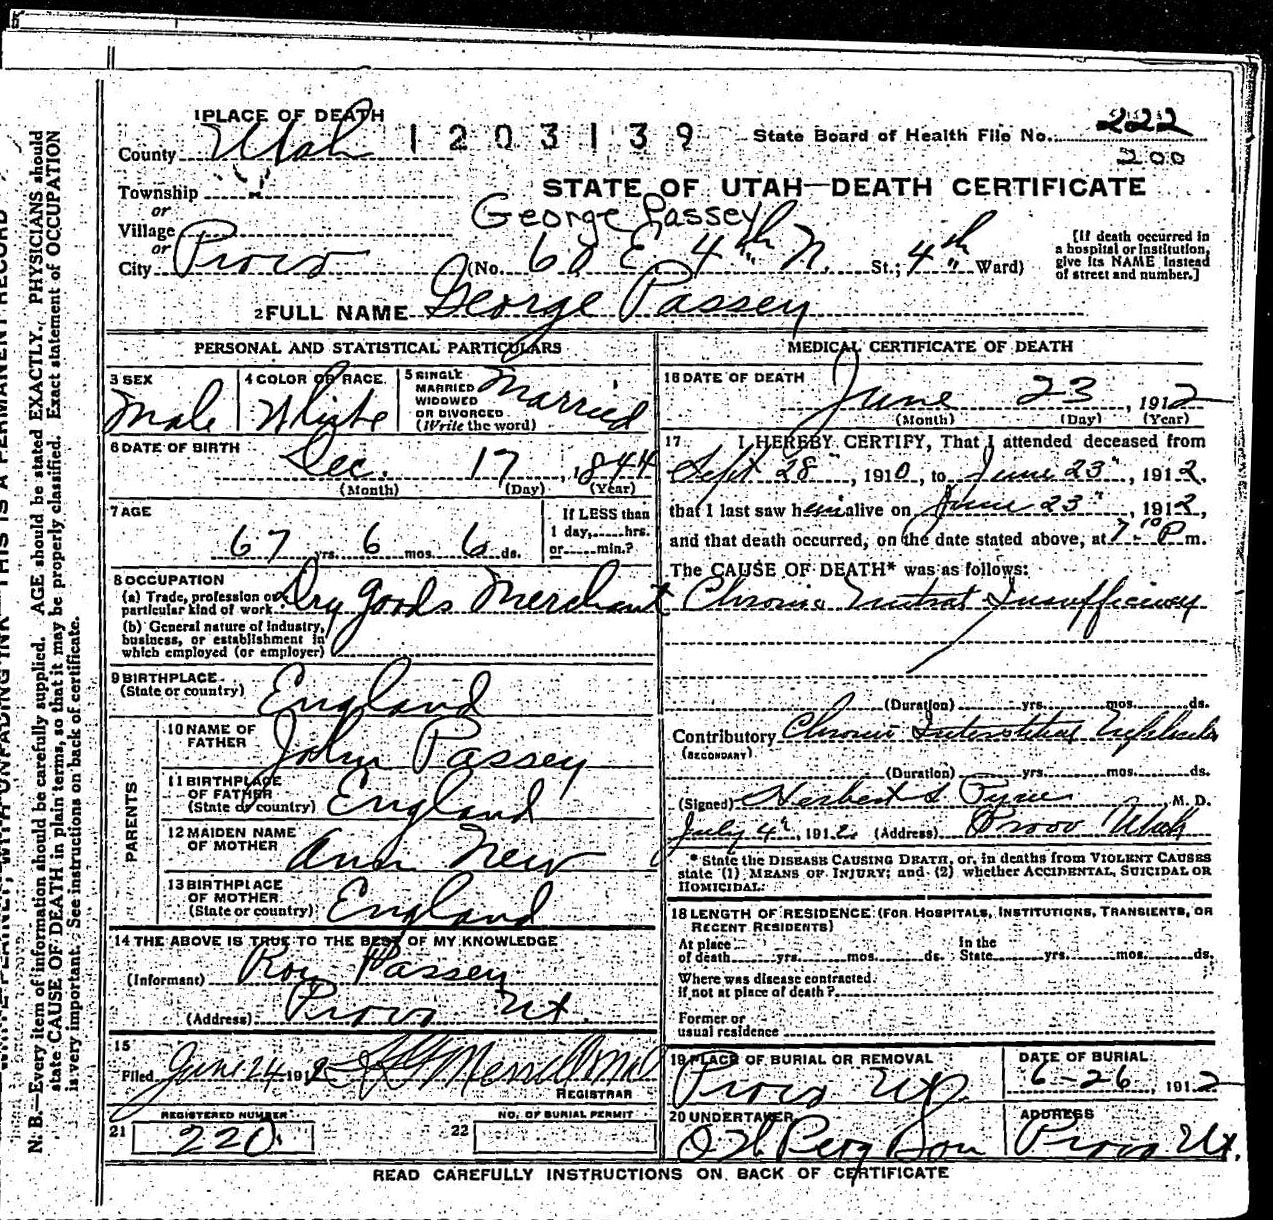 1 PLACE OF DEATH
County Utah
1203139
State Board of Health File No. 222
200
Township
or
Village
or
City Provo
STATE OF UTAH—DEATH CERTIFICATE
George Passey
(No. 60 E 4th N. St.; 4th Ward)
[If death occurred in a hospital or institution, give its NAME instead of street and number.]
2 FULL NAME George Passey
PERSONAL AND STATISTICAL PARTICULARS
3 SEX
Male
4 COLOR OR RACE
White
5 SINGLE
MARRIED
WIDOWED
OR DIVORCED
(Write the word)
Married
6 DATE OF BIRTH
Dec. 17, 1844
(Month) (Day) (Year)
7 AGE
67 yrs. 6 mos. 6 ds.
If LESS than
1 day, hrs.
or min.?
8 OCCUPATION
(a) Trade, profession or
particular kind of work Dry goods Merchant
(b) General nature of industry,
business, or establishment in
which employed (or employer)
9 BIRTHPLACE
(State or country) England
PARENTS
10 NAME OF
FATHER John Passey
11 BIRTHPLACE
OF FATHER
(State or country) England
12 MAIDEN NAME
OF MOTHER Ann New
13 BIRTHPLACE
OF MOTHER
(State or country) England
14 THE ABOVE IS TRUE TO THE BEST OF MY KNOWLEDGE
(Informant) Roy Passey
(Address) Provo Ut.
15
Filed June 24 1912
REGISTRAR
REGISTERED NUMBER
21 220
NO. OF BURIAL PERMIT
22
MEDICAL CERTIFICATE OF DEATH
16 DATE OF DEATH
June 23, 1912
(Month) (Day) (Year)
17 I HEREBY CERTIFY, That I attended deceased from
Sept 28", 1910, to June 23", 1912,
that I last saw him alive on June 23", 1912,
and that death occurred, on the date stated above, at 7:10 P m.
The CAUSE OF DEATH* was as follows:
Chronic Mitral Insufficiency
(Duration) yrs. mos. ds.
Contributory Chronic Interstitial Nephritis
(SECONDARY)
(Duration) yrs. mos. ds.
(Signed) Herbert S Pyne, M. D.
July 4", 1912. (Address) Provo Utah
* State the DISEASE CAUSING DEATH, or, in deaths from VIOLENT CAUSES
state (1) MEANS OF INJURY; and (2) whether ACCIDENTAL, SUICIDAL OR
HOMICIDAL.
18 LENGTH OF RESIDENCE (FOR HOSPITALS, INSTITUTIONS, TRANSIENTS, OR
RECENT RESIDENTS)
At place
of death yrs. mos. ds.
In the
State yrs. mos. ds.
Where was disease contracted
if not at place of death?
Former or
usual residence
19 PLACE OF BURIAL OR REMOVAL
Provo Ut.
DATE OF BURIAL
6-26, 1912
20 UNDERTAKER
Son
ADDRESS
Provo Ut.
READ CAREFULLY INSTRUCTIONS ON BACK OF CERTIFICATE
THIS IS A PERMANENT RECORD
N. B.—Every item of information should be carefully supplied. AGE should be stated EXACTLY. PHYSICIANS should
state CAUSE OF DEATH in plain terms, so that it may be properly classified. Exact statement of OCCUPATION
is very important. See instructions on back of certificate.